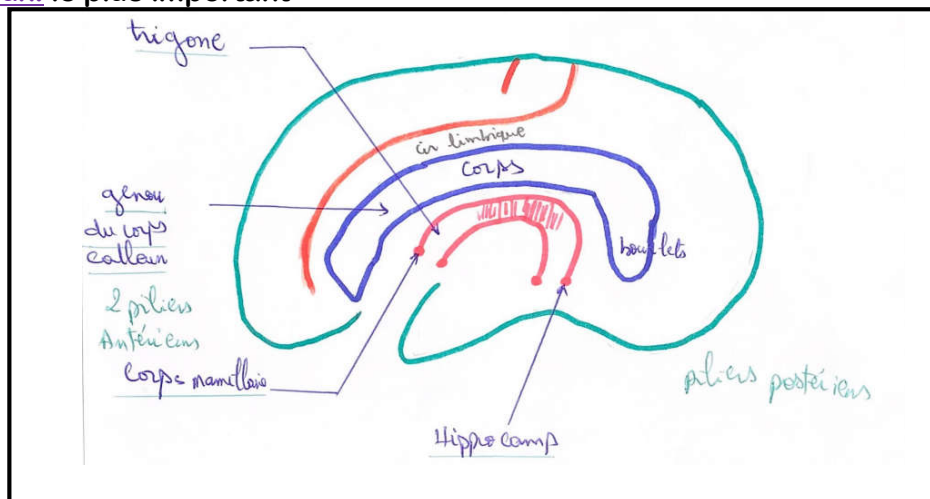 le plus important
trigone
cir limbique
corps
genou
du corps
calleux
bourrelets
2 piliers
Antérieurs
corps mamillaire
piliers postérieurs
Hippocamp